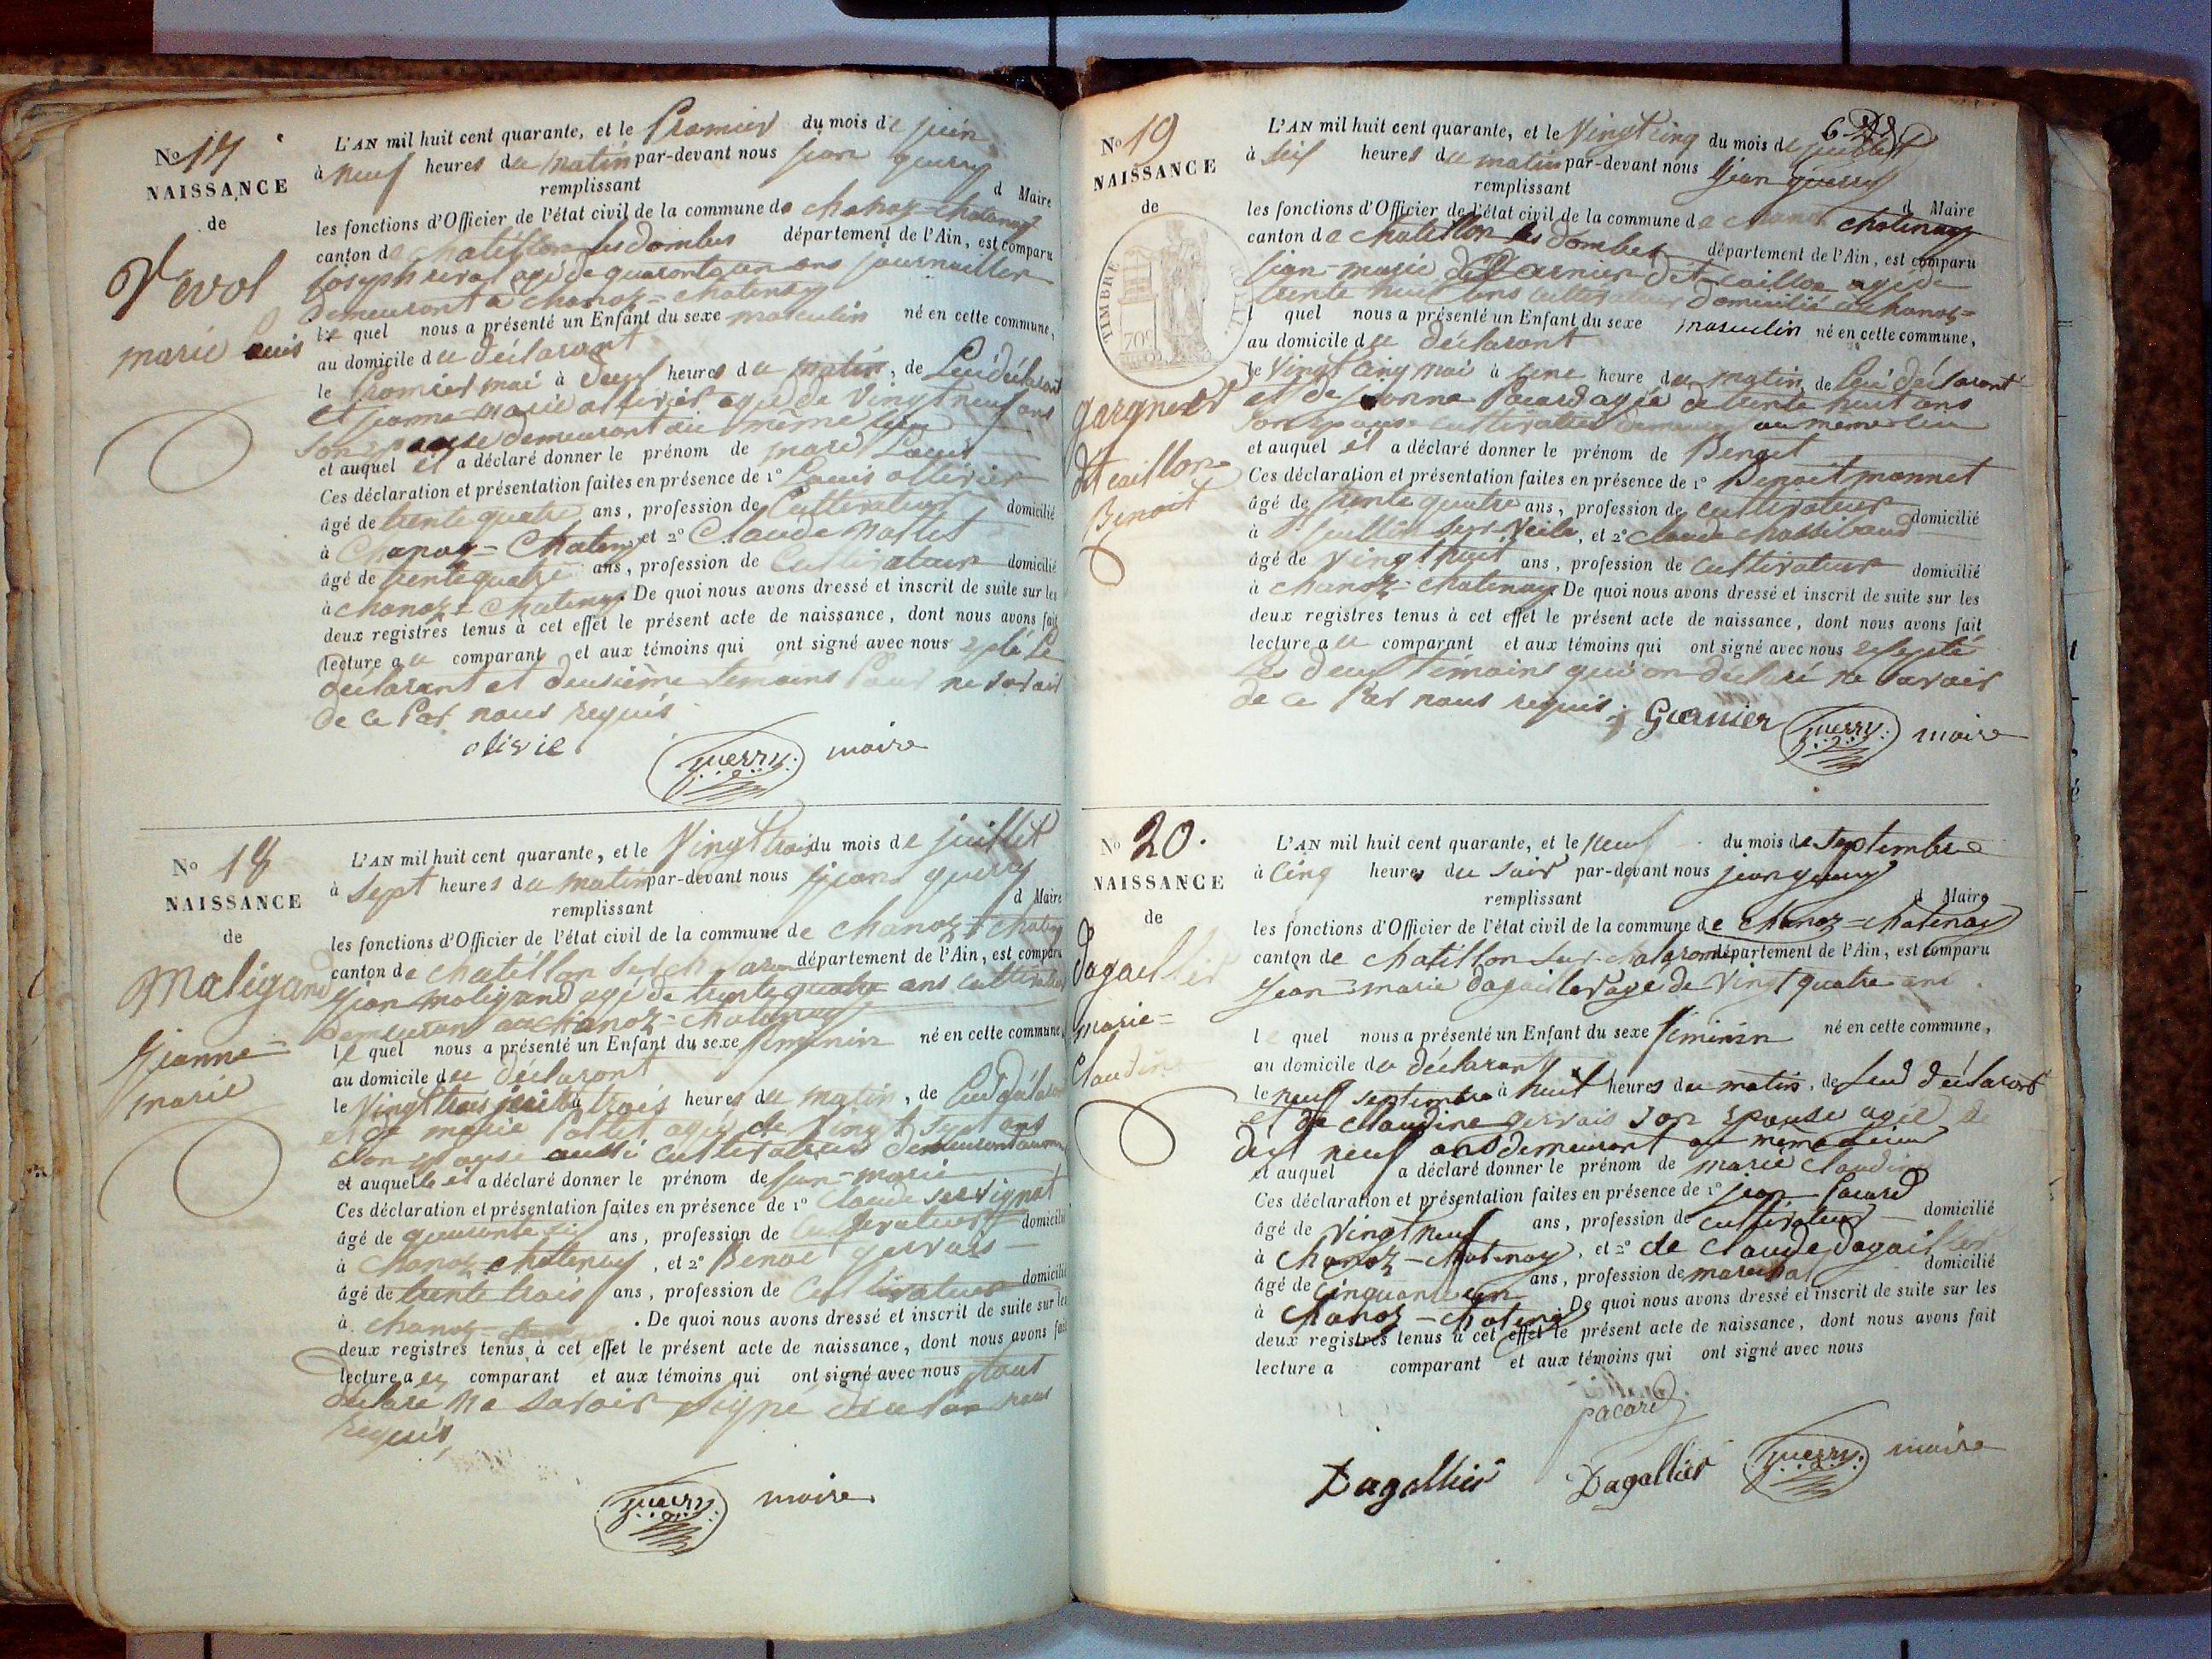 No 17
NAISSANCE
de
Revol
marie Louis
L'AN mil huit cent quarante, et le Premier du mois de juin
à neuf heures du matin par-devant nous jean guerry
remplissant d Maire
les fonctions d'Officier de l'état civil de la commune de chanoz=chatenay
canton de chatillon les dombes département de l'Ain, est comparu
joseph revol agé de quarante un ans journaillier
demeurant à chanoz=chatenay
le quel nous a présenté un Enfant du sexe masculin né en cette commune,
au domicile du déclarant
le Premier mai à deux heures du matin, de Lui déclarant
et jeanne-marie ollivier agée de Vingt neuf ans
son epouse demeurant au même lieu
et auquel il a déclaré donner le prénom de marie Louis
Ces déclaration et présentation faites en présence de 1° Louis ollivier
âgé de trente quatre ans, profession de Cultivateur domicilié
à Chanoz=Chatenay et 2° Claude
âgé de trente quatre ans, profession de Cultivateur domicilié
à chanoz=Chatenay. De quoi nous avons dressé et inscrit de suite sur les
deux registres tenus à cet effet le présent acte de naissance, dont nous avons fait
lecture au comparant et aux témoins qui ont signé avec nous
déclarant et deusième temoins Pour ne savoir
de ce Par nous requis
olivie guerry maire
No 18
NAISSANCE
de
Maligand
Jeanne=
marie
L'AN mil huit cent quarante, et le Vingt trois du mois de juillet
à sept heures du matin par-devant nous jean guerry
remplissant d Maire
les fonctions d'Officier de l'état civil de la commune de chanoz=chatenay
canton de chatillon sur chalaronne département de l'Ain, est comparu
jean maligand agé de trente quatre ans cultivateur
demeurant à chanoz=chatenay
le quel nous a présenté un Enfant du sexe feminin né en cette commune,
au domicile du déclarant
le Vingt trois juillet à trois heures du matin, de Lui déclarant
et de marie agée de Vingt sept ans
son epouse aussi cultivateur demeurant au
et auquelle il a déclaré donner le prénom de jean-marie
Ces déclaration et présentation faites en présence de 1° Claude servignat
âgé de quarante six ans, profession de cultivateur domicilié
à Chanoz chatenay, et 2° Benoit gervais
âgé de trente trois ans, profession de Cultivateur domicilié
à chanoz-. De quoi nous avons dressé et inscrit de suite sur les
deux registres tenus à cet effet le présent acte de naissance, dont nous avons fait
lecture au comparant et aux témoins qui ont signé avec nous tous
déclaré ne savoir signé de ce par nous
requis
guerry maire
No 19
NAISSANCE
de
TIMBRE
70c
gargnier
dit caillon
Benoit
L'AN mil huit cent quarante, et le Vingt cinq du mois de juillet
à six heures du matin par-devant nous jean guerry
remplissant d Maire
les fonctions d'Officier de l'état civil de la commune de chanoz chatenay
canton de chatillon les dombes département de l'Ain, est comparu
jean-marie garnier dit caillon agé de
trente huit ans cultivateur domicilié à chanoz=
l quel nous a présenté un Enfant du sexe masculin né en cette commune,
au domicile du déclarant
le Vingt cinq mai à une heure du matin, de Lui déclarant
et de jeanne Pacard agée de trente huit ans
son epouse cultivateur au meme lieu
et auquel il a déclaré donner le prénom de Benoit
Ces déclaration et présentation faites en présence de 1° Benoit monnet
âgé de trente quatre ans, profession de cultivateur domicilié
à St jullien sur Veile, et 2° claude chassibaud
âgé de Vingt huit ans, profession de cultivateur domicilié
à chanoz=chatenay. De quoi nous avons dressé et inscrit de suite sur les
deux registres tenus à cet effet le présent acte de naissance, dont nous avons fait
lecture au comparant et aux témoins qui ont signé avec nous excepté
les deux témoins qui on déclaré ne savoir
de ce Par nous requis. Garnier guerry maire
No 20.
NAISSANCE
de
dagaillier
marie=
Claudine
L'AN mil huit cent quarante, et le neuf du mois de septembre
à cinq heures du soir par-devant nous jean guerry
remplissant d Maire
les fonctions d'Officier de l'état civil de la commune de chanoz=chatenay
canton de chatillon sur chalaronne département de l'Ain, est comparu
jean marie dagaillier agé de Vingt quatre ans
le quel nous a présenté un Enfant du sexe féminin né en cette commune,
au domicile du déclarant
le neuf septembre à huit heures du matin, de Lui déclarant
et de claudine gervais son epouse agée de
dix neuf ans demeurant au meme lieu
et auquel a déclaré donner le prénom de marie Claudine
Ces déclaration et présentation faites en présence de 1° jean Pacard
âgé de Vingt neuf ans, profession de cultivateur domicilié
à Chanoz-chatenay, et 2° de claude dagaillier
âgé de Cinquante un ans, profession de marechal domicilié
à Chanoz-chatenay De quoi nous avons dressé et inscrit de suite sur les
deux registres tenus à cet effet le présent acte de naissance, dont nous avons fait
lecture a comparant et aux témoins qui ont signé avec nous
pacard
Dagallier Dagallier guerry maire